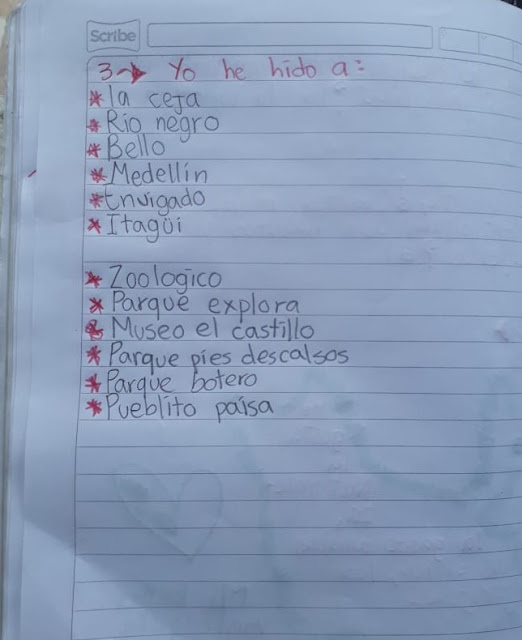 Scribe
3→ Yo he hido a:
* la ceja
* Rio negro
* Bello
* Medellín
* Envigado
* Itagüi
* Zoologico
* Parque explora
* Museo el castillo
* Parque pies descalsos
* Parque botero
* Pueblito paisa